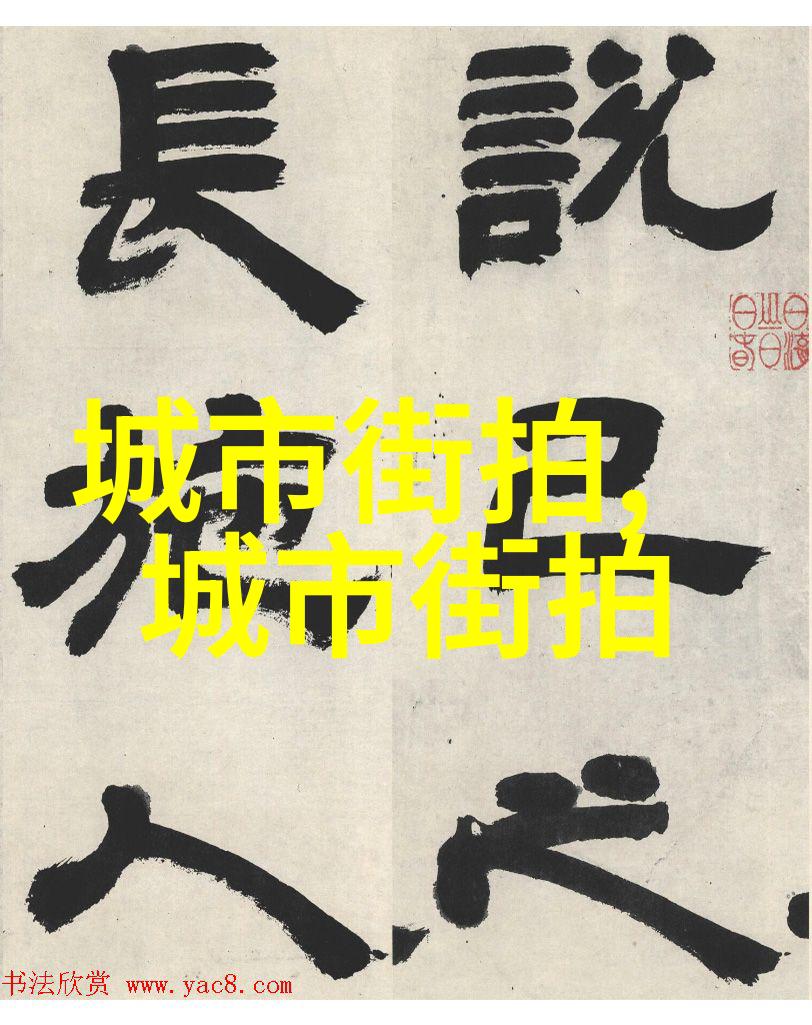 說己之
長施人
城市街拍,
城市街拍
书法欣赏 www.yac8.com